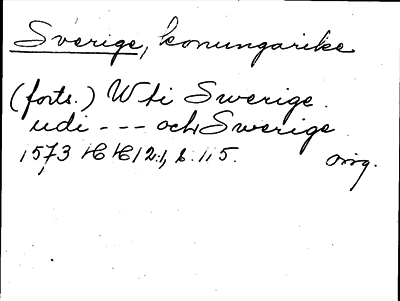 Sverige, konungarike
(forts.) Wti Swerige.
udi --- och Swerige
1573 HH 12:1, b. 1, 5. orig.